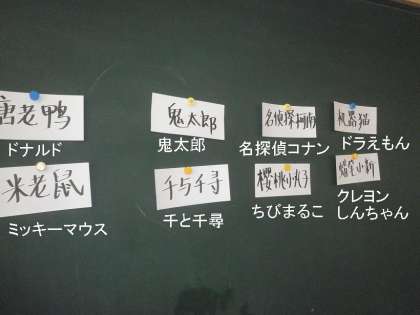 唐老鸭
鬼太郎
名侦探柯南
机器猫
ドナルド
鬼太郎
名探偵コナン
ドラえもん
米老鼠
千与千寻
樱桃小丸子
蜡笔小新
ミッキーマウス
千と千尋
ちびまるこ
クレヨン
しんちゃん